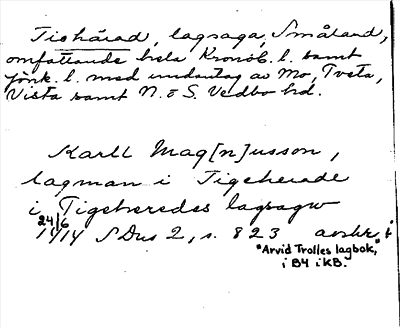 Tiohärad, lagsaga, Småland,
omfattande hela Kronob. l. samt
jönk. l. med undantag av Mo, Tveta,
Vista samt N. o S. Vedbo hd.
Karll Mag[n]usson,
lagman i Tigeherade
i Tigeheredes lagsagw
24/6
1414 SDns 2, s. 823 avskr. i
"Arvid Trolles lagbok,"
i B4 i KB.